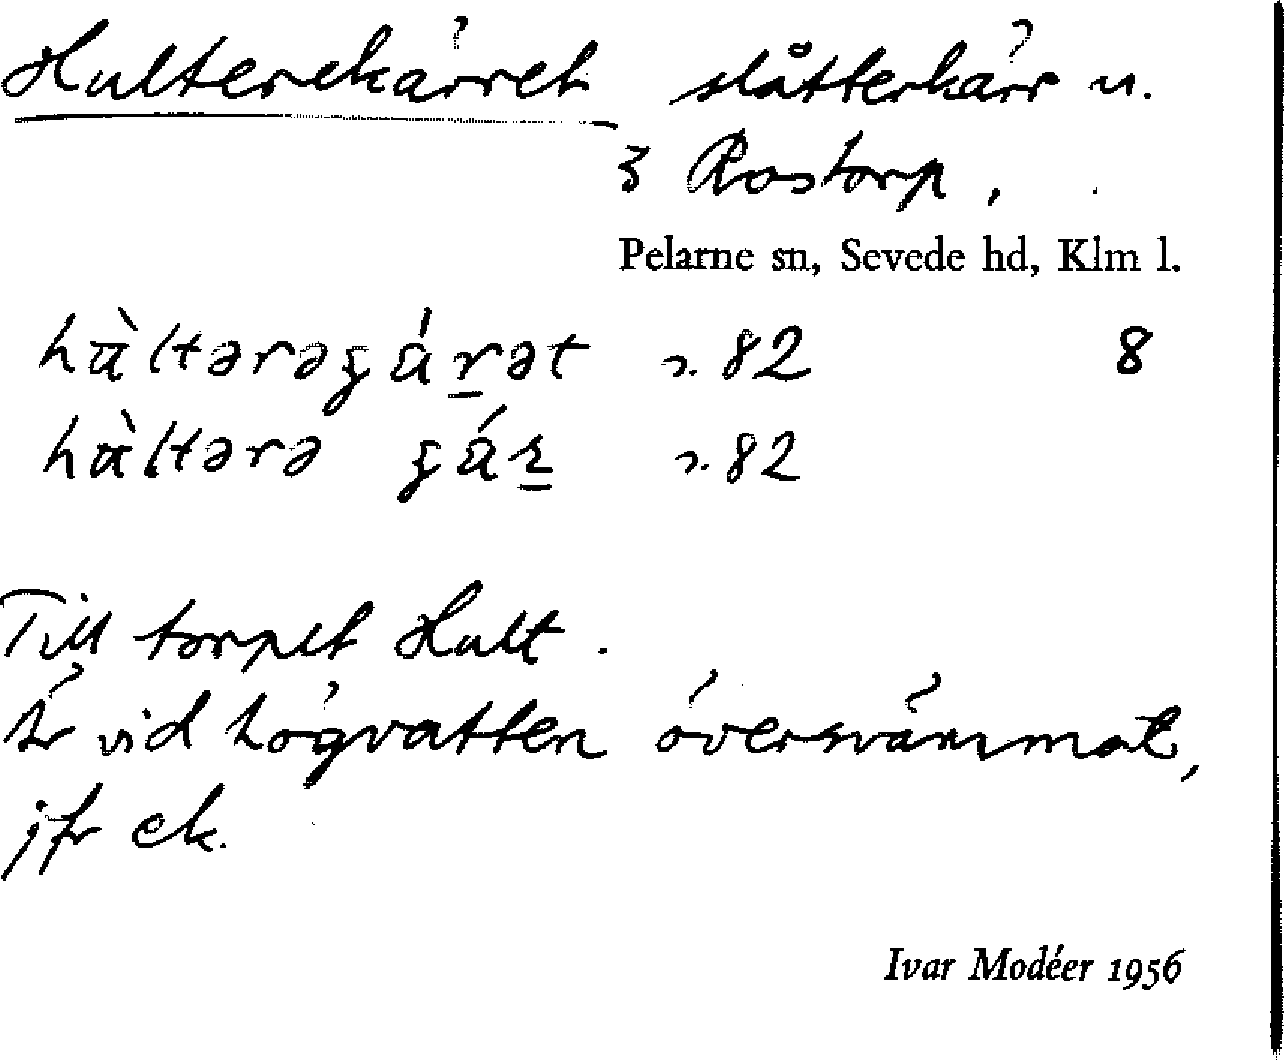 Hulterekärret slåtterkärr u.
3 Rostorp,
Pelarne sn, Sevede hd, Klm l.
hùltərəgárət s. 82 8
hùltərə gár s. 82
Till torpet Hult.
Är vid högvatten översvämmat,
jfr ek.
Ivar Modéer 1956